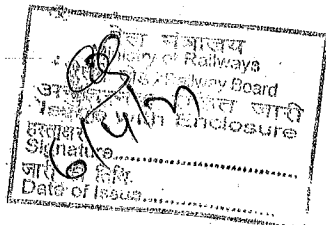 रेल मंत्रालय
Ministry of Railways
Railway Board
जारी
Issued with Enclosure
हस्ताक्षर
Signature
6/4/3
जारी की तिथि
Date of Issue